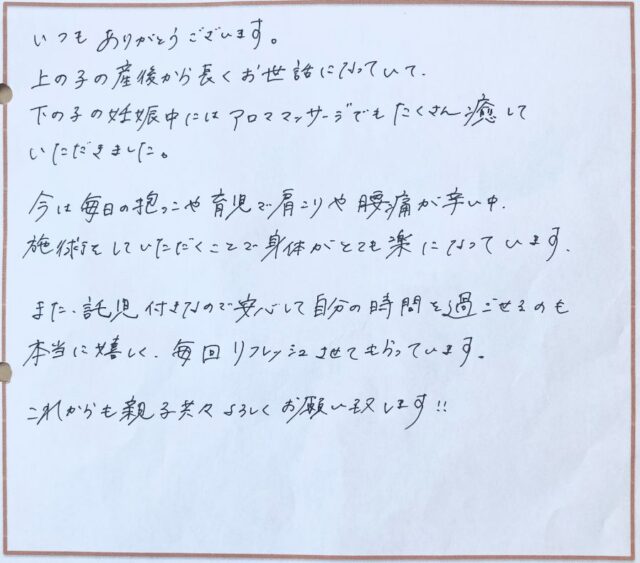 いつもありがとうございます。
上の子の産後から長くお世話になっていて、
下の子の妊娠中にはアロママッサージでもたくさん癒して
いただきました。
今は毎日の抱っこや育児で肩こりや腰痛が辛い中、
施術をしていただくことで身体がとても楽になっています。
また、託児付きなので安心して自分の時間を過ごせるのも
本当に嬉しく、毎回リフレッシュさせてもらっています。
これからも親子共々よろしくお願い致します!!